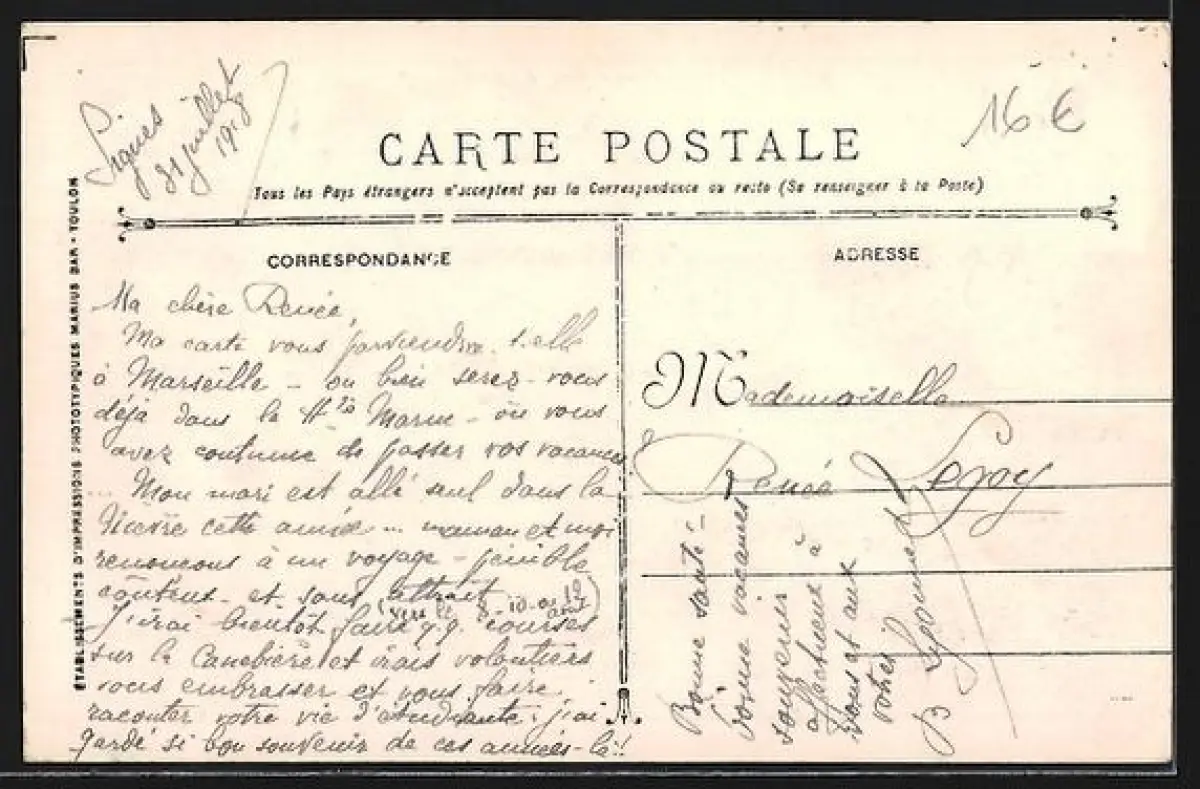 Signes
31 juillet
1918
16 €
CARTE POSTALE
Tous les Pays étrangers n'acceptent pas la Correspondance au recto (Se renseigner à la Poste)
CORRESPONDANCE
ADRESSE
ÉTABLISSEMENTS D'IMPRESSIONS PHOTOTYPIQUES MARIUS BAR - TOULON
Ma chère Renée,
Ma carte vous parviendra-t-elle
à Marseille - ou bien serez-vous
déjà dans la Hte Marne - où vous
avez coutume de passer vos vacances
Mon mari est allé seul dans la
Nièvre cette année... maman et moi
renoncons à un voyage - pénible
coûteux - et sans attrait
(vers le 8-10-ou 12 août)
J'irai bientôt faire q.q. courses
sur la Canebière et irais volontiers
vous embrasser et vous faire
raconter votre vie d'étudiante; j'ai
gardé si bon souvenir de ces années-là!!
Mademoiselle
Renée Leroy
Bonne santé!-
bonne vacances
souvenirs
affectueux à
vous et aux
vôtres